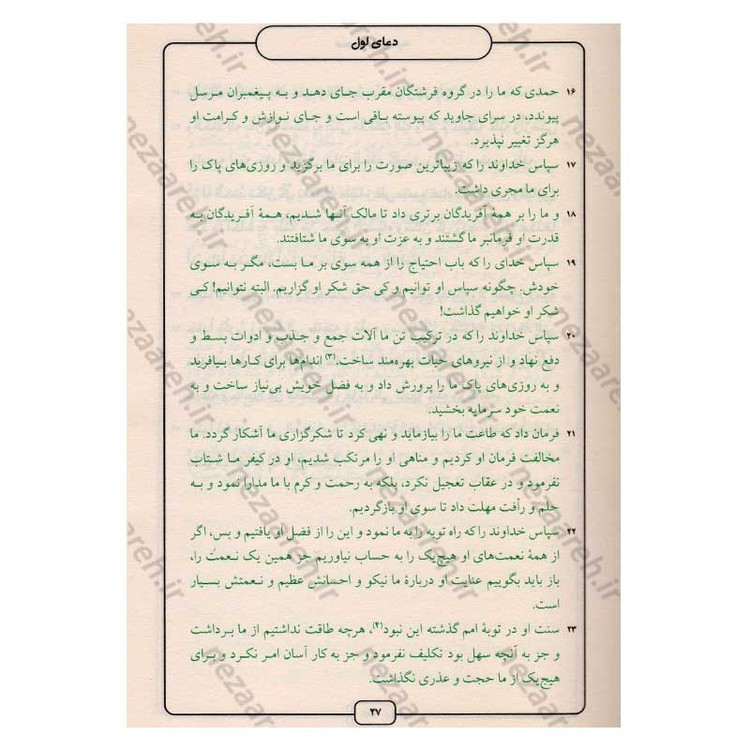 دعای اول
۱۶ حمدی که ما را در گروه فرشتگان مقرب جای دهد و به پیغمبران مرسل
پیوندد، در سرای جاوید که پیوسته باقی است و جای نوازش و کرامت او
هرگز تغییر نپذیرد.
۱۷ سپاس خداوند را که زیباترین صورت را برای ما برگزید و روزی‌های پاک را
برای ما مجری داشت.
۱۸ و ما را بر همهٔ آفریدگان برتری داد تا مالک آنها شدیم، همهٔ آفریدگان به
قدرت او فرمانبر ما گشتند و به عزت او به سوی ما شتافتند.
۱۹ سپاس خدای را که باب احتیاج را از همه سوی بر ما بست، مگر به سوی
خودش. چگونه سپاس او توانیم و کی حق شکر او گزاریم. البته نتوانیم! کی
شکر او خواهیم گذاشت!
۲۰ سپاس خداوند را که در ترکیب تن ما آلات جمع و جذب و ادوات بسط و
دفع نهاد و از نیروهای حیات بهره‌مند ساخت.(۳) اندام‌ها برای کارها بیافرید
و به روزی‌های پاک ما را پرورش داد و به فضل خویش بی‌نیاز ساخت و به
نعمت خود سرمایه بخشید.
۲۱ فرمان داد که طاعت ما را بیازماید و نهی کرد تا شکرگزاری ما آشکار گردد. ما
مخالفت فرمان او کردیم و مناهی او را مرتکب شدیم، او در کیفر ما شتاب
نفرمود و در عقاب تعجیل نکرد، بلکه به رحمت و کرم با ما مدارا نمود و به
حلم و رأفت مهلت داد تا سوی او بازگردیم.
۲۲ سپاس خداوند را که راه توبه را به ما نمود و این را از فضل او یافتیم و بس، اگر
از همهٔ نعمت‌های او هیچ‌یک را به حساب نیاوریم جز همین یک نعمت را،
باز باید بگوییم عنایت او دربارهٔ ما نیکو و احسانش عظیم و نعمتش بسیار
است.
۲۳ سنت او در توبهٔ امم گذشته این نبود(۴)، هرچه طاقت نداشتیم از ما برداشت
و جز به آنچه سهل بود تکلیف نفرمود و جز به کار آسان امر نکرد و برای
هیچ‌یک از ما حجت و عذری نگذاشت.
۲۷
nezaareh.ir